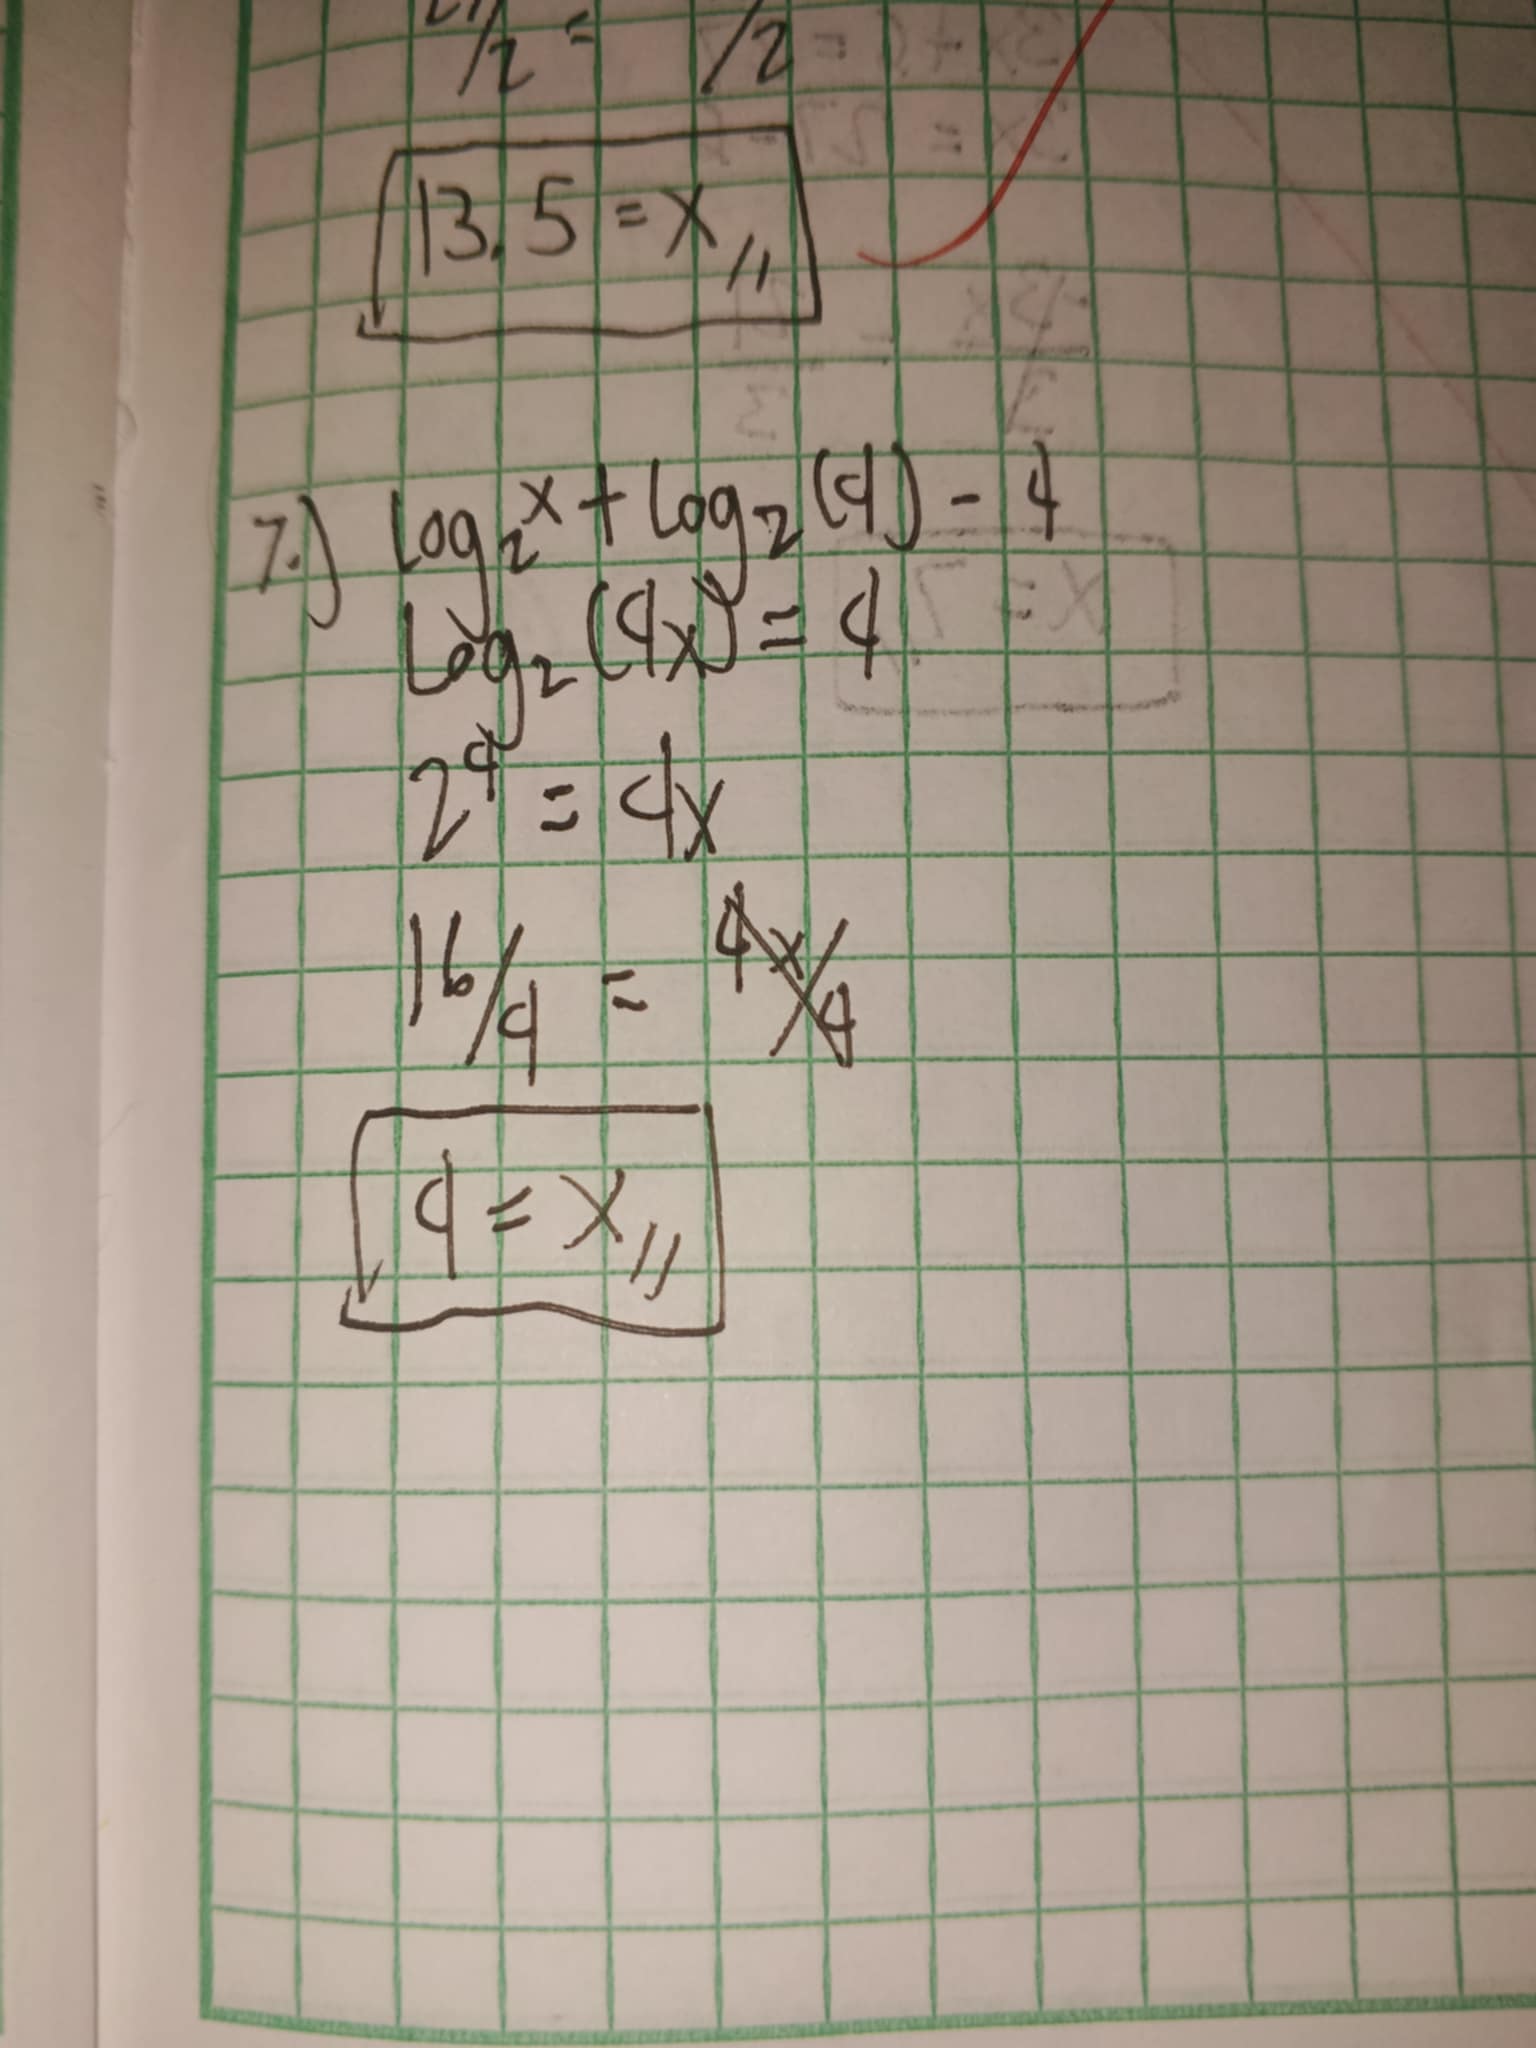 /2 = /2
13.5 = x,,
7.) Log₂x + Log₂(4) - 4
Log₂(4x) = 4
2⁴ = 4x
16/4 = 4x/4
4 = x,,